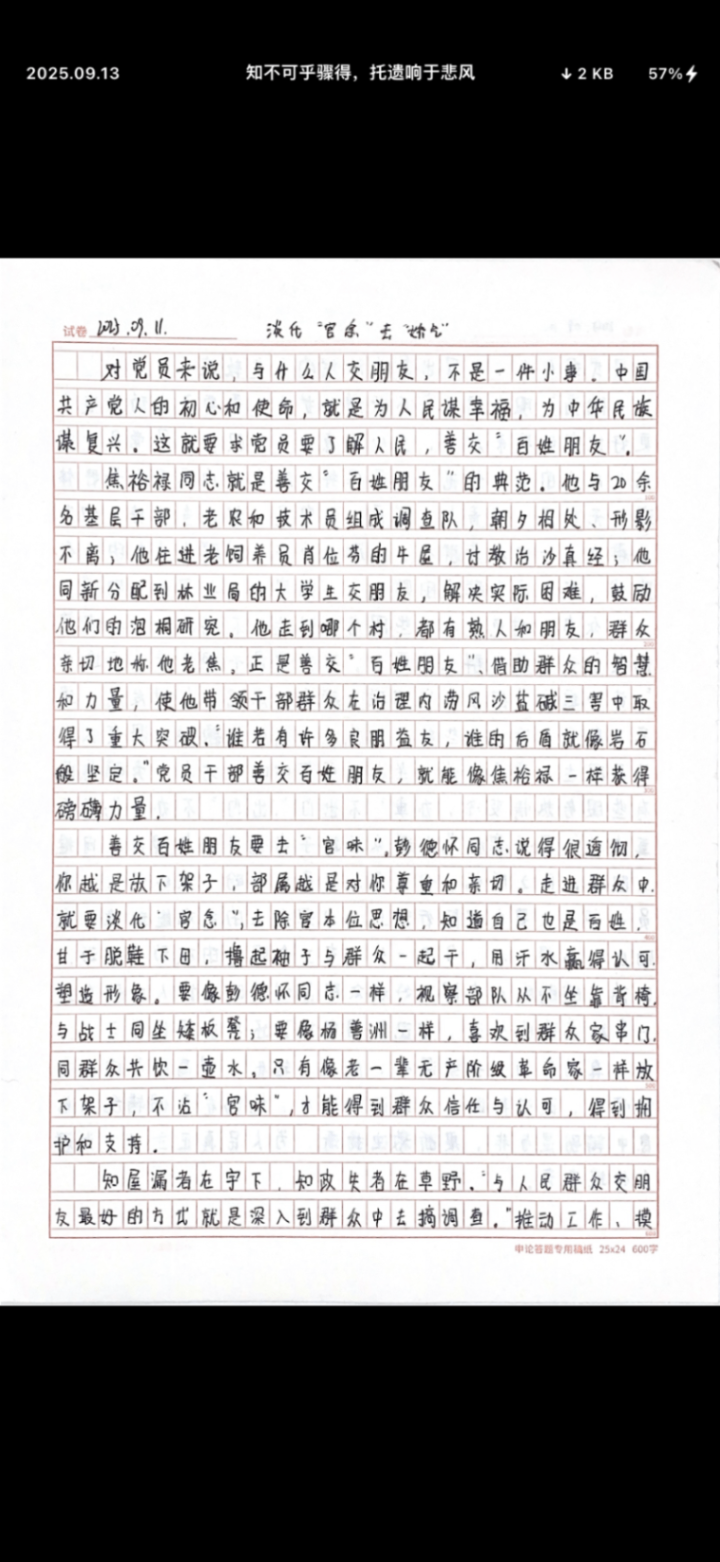 2025.09.13 知不可乎骤得，托遗响于悲风 ↓ 2 KB 57%
试卷 2025.09.11. 淡化“官念”去“娇气”
对党员来说，与什么人交朋友，不是一件小事。中国
共产党人的初心和使命，就是为人民谋幸福，为中华民族
谋复兴。这就要求党员要了解人民，善交“百姓朋友”。
焦裕禄同志就是善交“百姓朋友”的典范。他与20余
名基层干部、老农和技术员组成调查队，朝夕相处、形影
不离；他住进老饲养员肖位芬的牛屋，讨教治沙真经；他
同新分配到林业局的大学生交朋友，解决实际困难，鼓励
他们的泡桐研究。他走到哪个村，都有熟人和朋友，群众
亲切地称他老焦。正是善交“百姓朋友”、借助群众的智慧
和力量，使他带领干部群众在治理内涝风沙盐碱三害中取
得了重大突破。“谁若有许多良朋益友，谁的后盾就像岩石
般坚定。”党员干部善交百姓朋友，就能像焦裕禄一样获得
磅礴力量。
善交百姓朋友要去“官味”。彭德怀同志说得很透彻，
你越是放下架子，部属越是对你尊重和亲切。走进群众中，
就要淡化“官念”，去除官本位思想，知道自己也是百姓，
甘于脱鞋下田，撸起袖子与群众一起干，用汗水赢得认可，
塑造形象。要像彭德怀同志一样，视察部队从不坐靠背椅，
与战士同坐矮板凳；要像杨善洲一样，喜欢到群众家串门，
同群众共饮一壶水。只有像老一辈无产阶级革命家一样放
下架子，不沾“官味”，才能得到群众信任与认可，得到拥
护和支持。
知屋漏者在宇下，知政失者在草野。“与人民群众交朋
友最好的方式就是深入到群众中去搞调查。”推动工作、摸
申论答题专用稿纸 25x24 600字